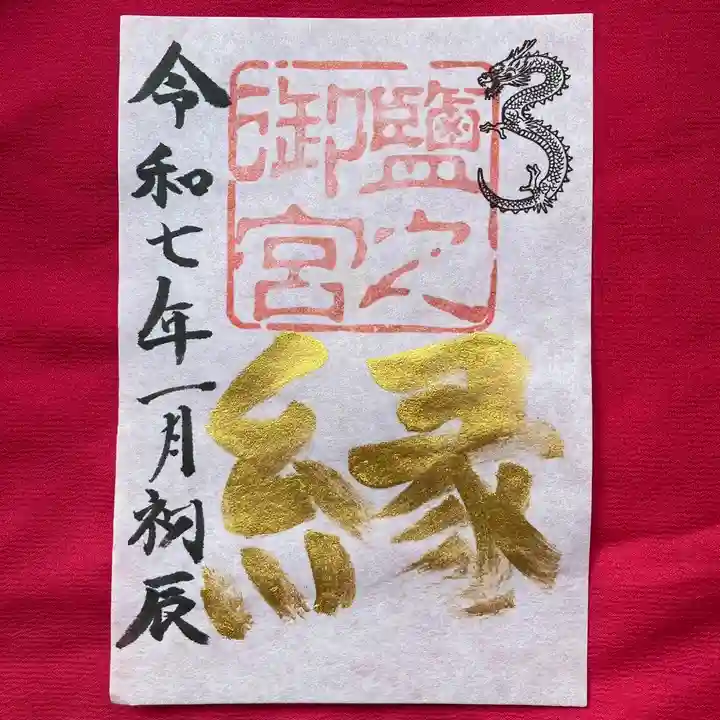 鹽次
御宮
縁
令和七年一月初辰